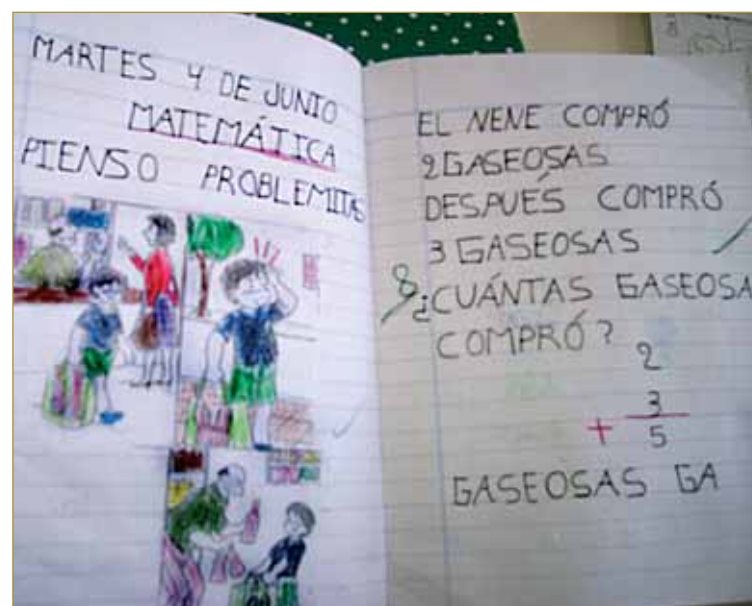 MARTES 4 DE JUNIO
MATEMÁTICA
PIENSO PROBLEMITAS
EL NENE COMPRÓ
2 GASEOSAS
DESPUÉS COMPRÓ
3 GASEOSAS
¿CUÁNTAS GASEOSA
COMPRÓ?
2
3
+ 5
GASEOSAS GA